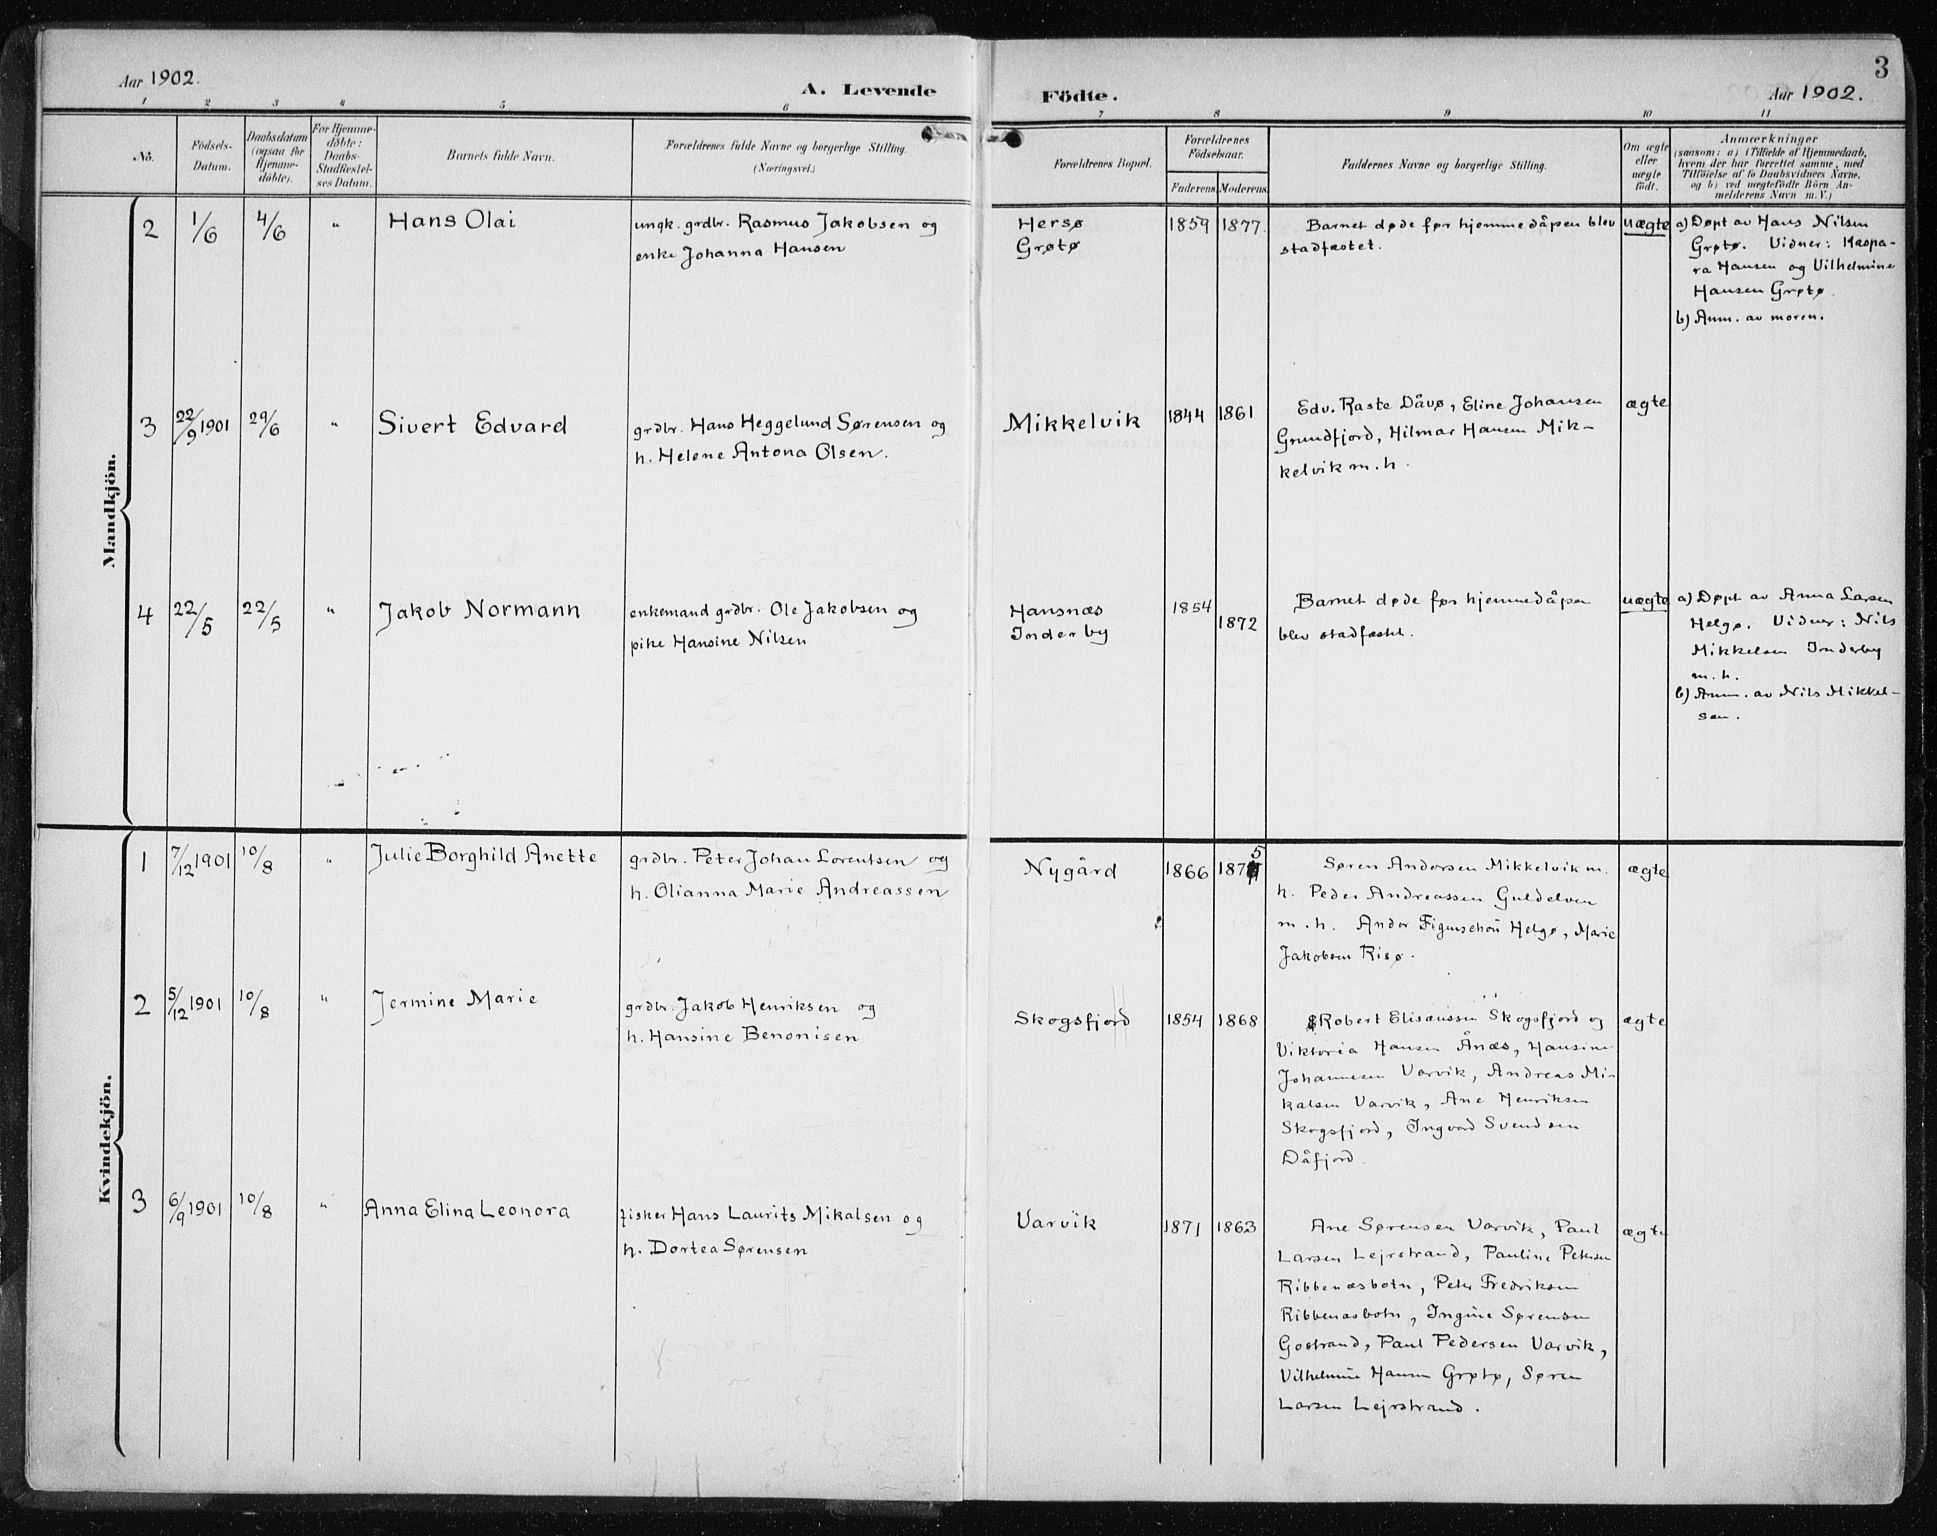 Aar 1902.
A. Levende
Födte.
Aar 1902.
3
1 2 3 4 5 6 7 8 9 10 11
No.
Födsels-
Datum.
Daabsdatum
(ogsaa for
Hjemme-
döbte).
For Hjemme-
döbte:
Daabs-
Stadfæstel-
ses Datum.
Barnets fulde Navn.
Forældrenes fulde Navne og borgerlige Stilling.
(Næringsvei.)
Forældrenes Bopæl.
Forældrenes
Födselsaar.
Faderens.
Moderens.
Faddernes Navne og borgerlige Stilling.
Om ægte
eller
uægte
födt.
Anmærkninger
(saasom: a) i Tilfælde af Hjemmedaab,
hvem der har forrettet samme, med
Tilföielse af to Daabsvidners Navne,
og b) ved uægtefödte Börn An-
melderens Navn m. V.)
Mandkjön.
2
1/6
4/6
"
Hans Olai
ungk. grdbr. Rasmus Jakobsen og
enke Johanna Hansen
Hersø
Grøtø
1859
1877.
Barnet døde før hjemmedåpen blev
stadfæstet.
uægte
a) Døpt av Hans Nilsen
Grøtø. Vidner: Kaspa-
ra Hansen og Vilhelmine
Hansen Grøtø.
b) Anm. av moren.
3
22/9 1901
29/6
"
Sivert Edvard
grdbr. Hans Heggelund Sørensen og
h. Helene Antona Olsen.
Mikkelvik
1844
1861
Edv. Raste Dåvø, Eline Johansen
Grundfjord, Hilmar Hansen Mik-
kelvik m. h.
ægte
4
22/5
22/5
"
Jakob Normann
enkemand grdbr. Ole Jakobsen og
pike Hansine Nilsen
Hansnæs
Inderby
1854
1872
Barnet døde før hjemmedåpen
blev stadfæstet.
uægte
a) Døpt av Anna Larsen
Helgø. Vidner: Nils
Mikkelsen Inderby
m. h.
b) Anm. av Nils Mikkel-
sen.
Kvindekjön.
1
7/12 1901
10/8
"
Julie Borghild Anette
grdbr. Peter Johan Lorentsen og
h. Olianna Marie Andreassen
Nygård
1866
1875
Søren Andersen Mikkelvik m.
h. Peder Andreassen Guldelven
m. h. Andor Figenschou Helgø, Marie
Jakobsen Risø.
ægte
2
5/12 1901
10/8
"
Jermine Marie
grdbr. Jakob Henriksen og
h. Hansine Benonisen
Skogsfjord
1854
1868
Robert Elisæussen Skogsfjord og
Viktoria Hansen Ånæs, Hansine
Johannesen Varvik, Andreas Mi-
kalsen Varvik, Ane Henriksen
Skogsfjord, Ingvard Svendsen
Dåfjord.
ægte
3
6/9 1901
10/8
"
Anna Elina Leonora
fisker Hans Laurits Mikalsen og
h. Dortea Sørensen
Varvik
1871
1863
Ane Sørensen Varvik, Paul
Larsen Lejrstrand, Pauline Petersen
Ribbenæsbotn, Peter Fredriksen
Ribbenæsbotn, Ingine Sørensen
Gostrand, Paul Pedersen Varvik,
Vilhelmine Hansen Grøtø, Søren
Larsen Lejrstrand.
ægte